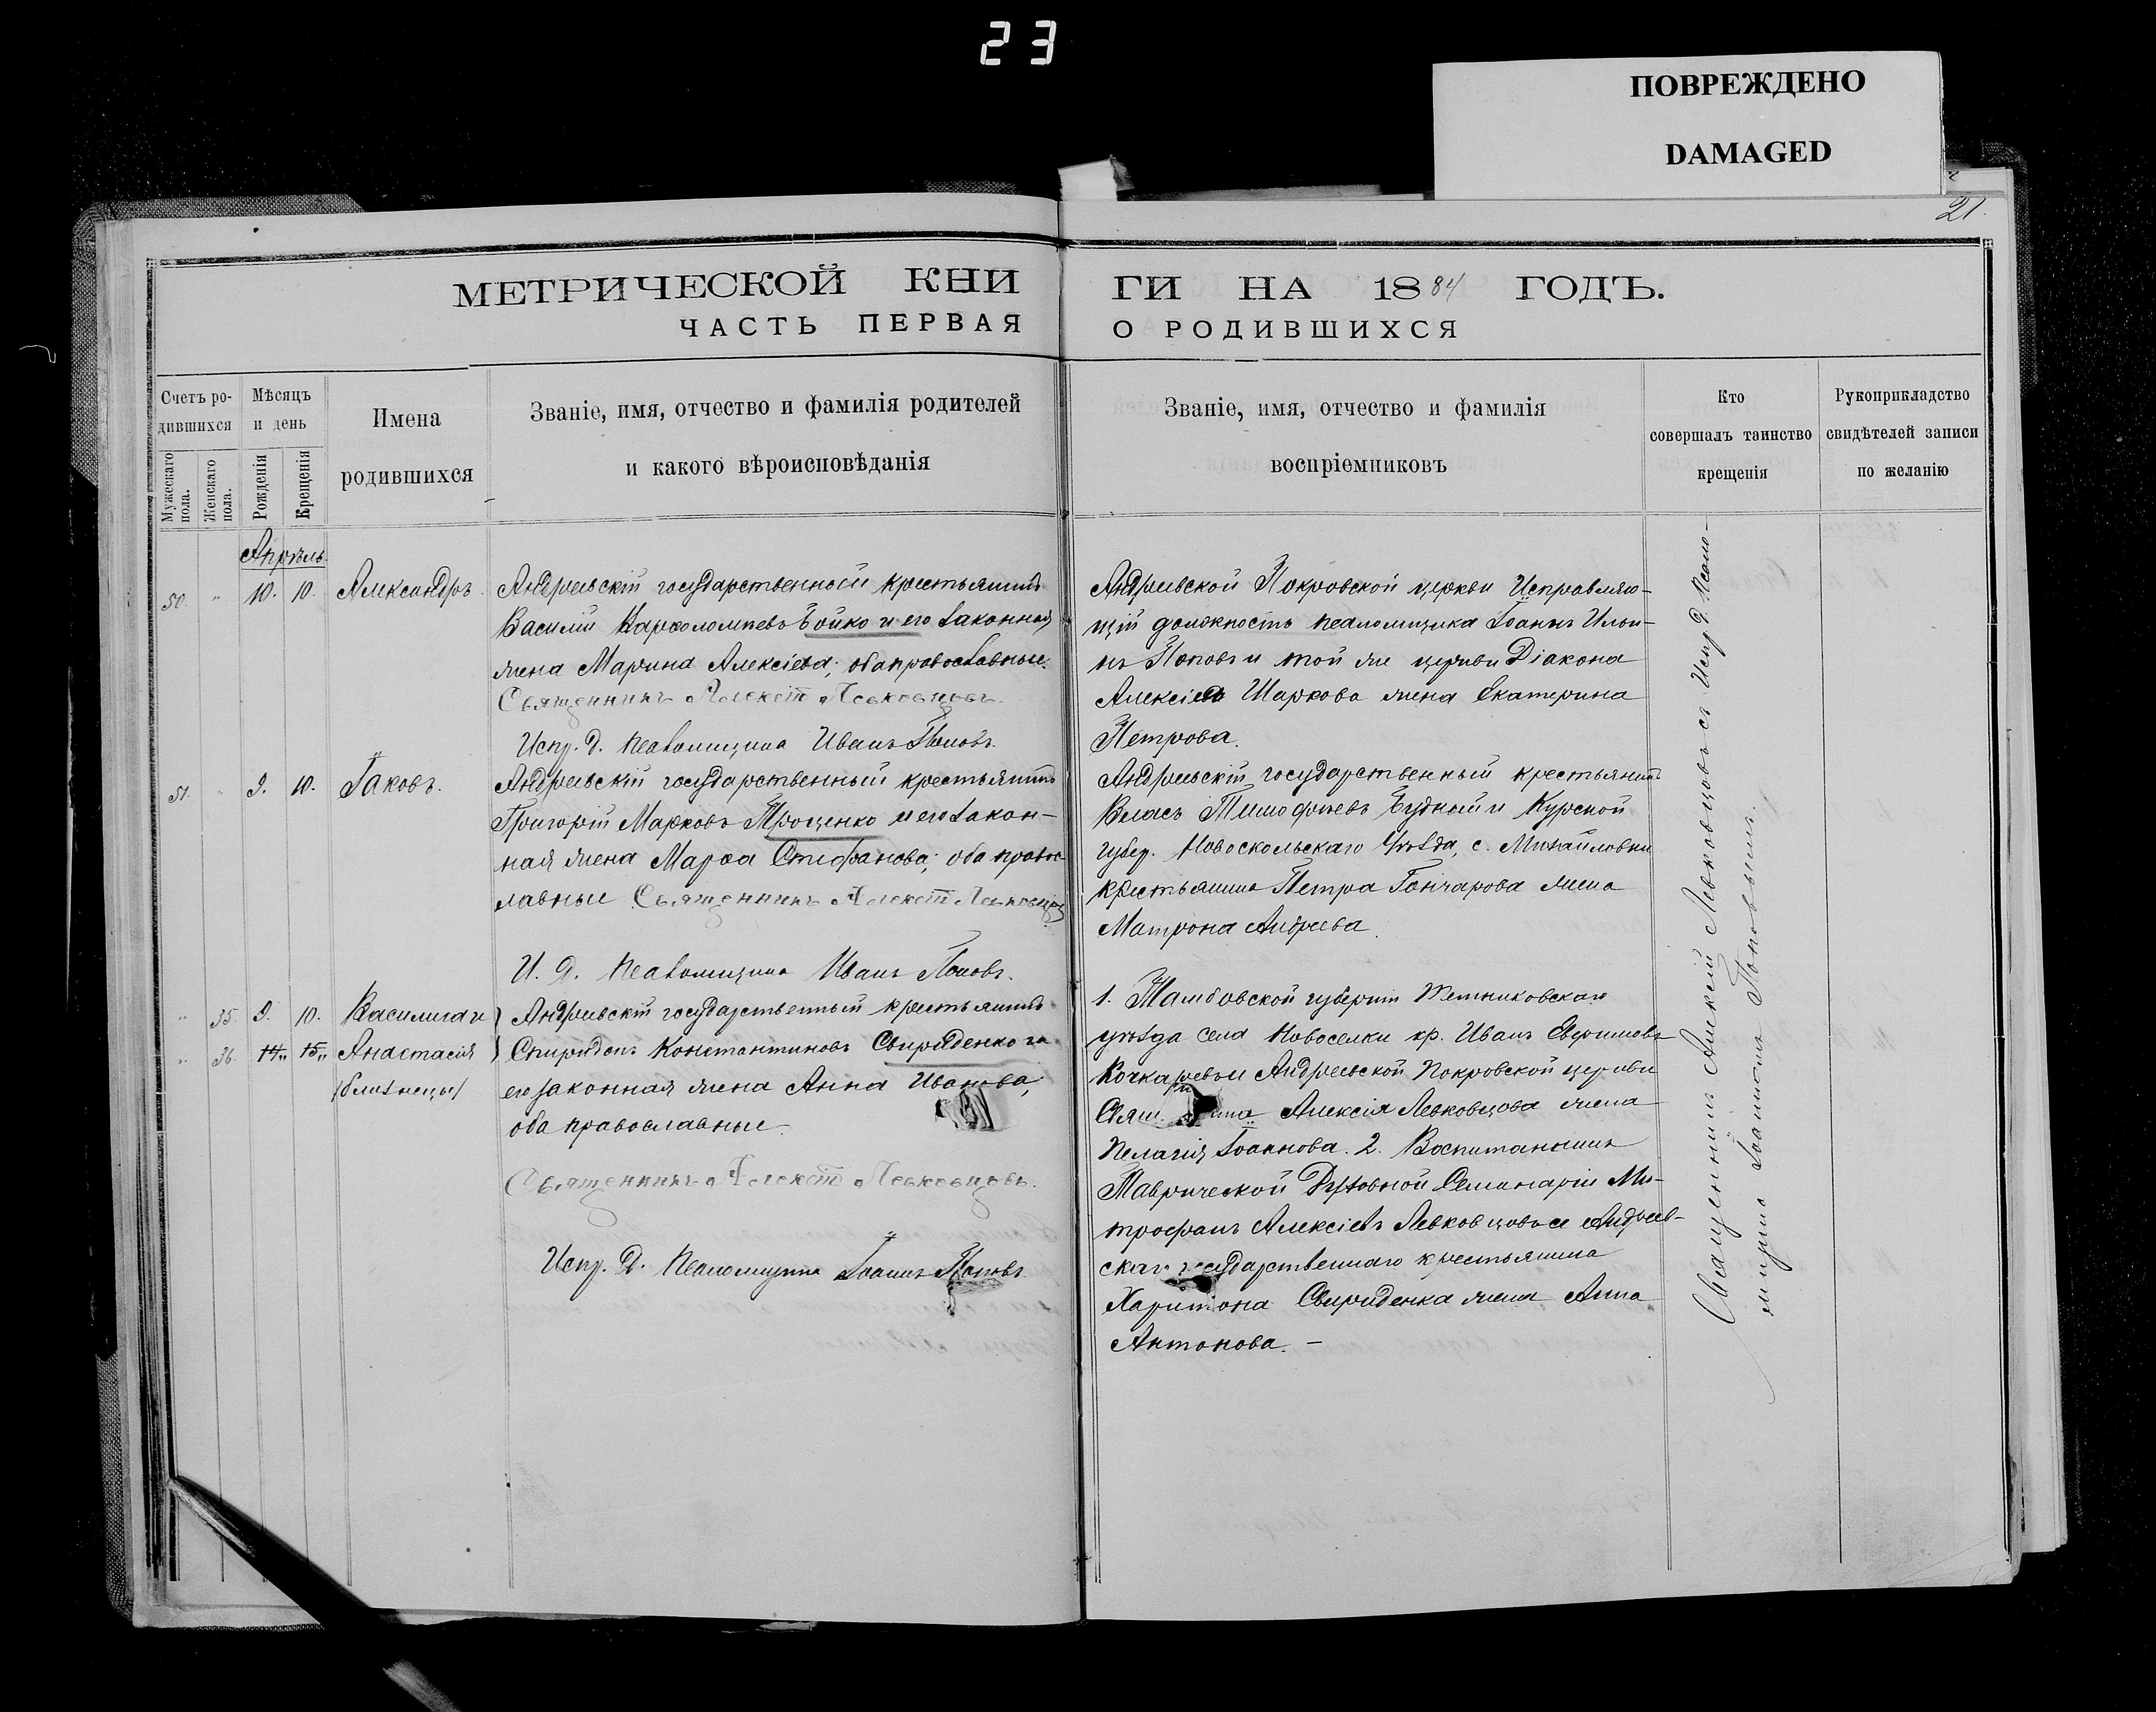 23
ПОВРЕЖДЕНО
DAMAGED
21.
МЕТРИЧЕСКОЙ КНИ
ЧАСТЬ ПЕРВАЯ
ГИ НА 1884 ГОДЪ.
О РОДИВШИХСЯ
Счетъ ро-
дившихся
Мужескаго
пола.
Женскаго
пола.
Мѣсяцъ
и день
Рожденія
Крещенія
Имена
родившихся
Званіе, имя, отчество и фамилія родителей
и какого вѣроисповѣданія
Званіе, имя, отчество и фамилія
воспріемниковъ
Кто
совершалъ таинство
крещенія
Рукоприкладство
свидѣтелей записи
по желанію
Апрѣль.
50. „ 10. 10. Александръ.
Андреевскій государственный крестьянинъ
Василій Варѳоломеевъ Бойко и его законная
жена Марина Алексіева; оба православные.
Священникъ Алексій Левковцовъ.
Испр. д. псаломщика Иванъ Поповъ.
Андреевской Покровской церкви Исправляю-
щій должность псаломщика Іоаннъ Ильи-
нъ Поповъ и той же церкви Діакона
Алексія Шаркова жена Екатерина
Петрова.
51. „ 9. 10. Іаковъ.
Андреевскій государственный крестьянинъ
Григорій Марковъ Троценко и его закон-
ная жена Марѳа Стефанова; оба правос-
лавные Священникъ Алексій Левковцовъ
И. д. псаломщика Иванъ Поповъ.
Андреевскій государственный крестьянинъ
Власъ Тимофеевъ Будный и Курской
губер. Новоскольскаго уѣзда, с. Михайловки
крестьянина Петра Гончарова жена
Матрона Андреева.
„ 35. 9. 10. Василиса и
„ 36. 14„ 15„ Анастасія
(близнецы)
Андреевскій государственный крестьянинъ
Спиридонъ Константиновъ Свириденко и
его законная жена Анна Иванова;
оба православные.
Священникъ Алексій Левковцовъ.
Испр. д. псаломщика Іоаннъ Поповъ
1. Тамбовской губерніи
уѣзда села Новоселки кр. Иванъ Ефимовъ
и Андреевской Покровской церкви
Свящ. Алексія Левковцова жена
Пелагія Іоаннова. 2. Воспитанникъ
Таврической Духовной Семинаріи Ми-
трофанъ Алексіевъ Левковцовъ и Андреев-
скаго государственнаго крестьянина
Харитона Свириденка жена Анна
Антонова. —
Священникъ Алексій Левковцовъ съ Испр. д. псалом-
щика Іоанномъ Поповымъ.